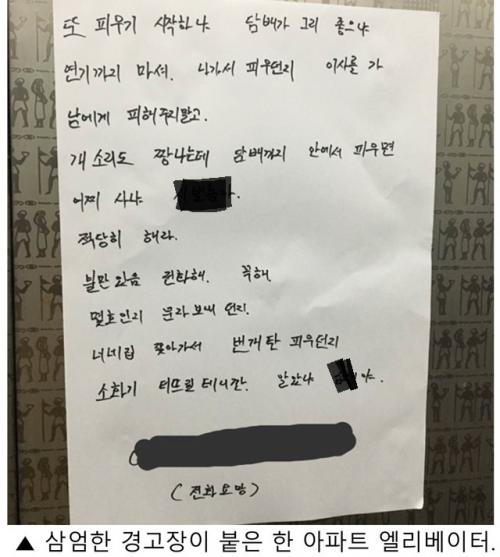 또 피우기 시작하냐 담배가 그리 좋으냐
연기까지 마셔. 나가서 피우던지 이사를 가
남에게 피해주지말고.
개소리도 짱나는데 담배까지 안에서 피우면
어찌 사냐
적당히 해라.
불만있음 전화해. 꼭해.
몇호인지 문자 보내던지.
너네집 찾아가서 번개탄 피우던지
소화기 터뜨릴 테니깐. 알았냐 야.
(전화요망)
▲ 삼엄한 경고장이 붙은 한 아파트 엘리베이터.